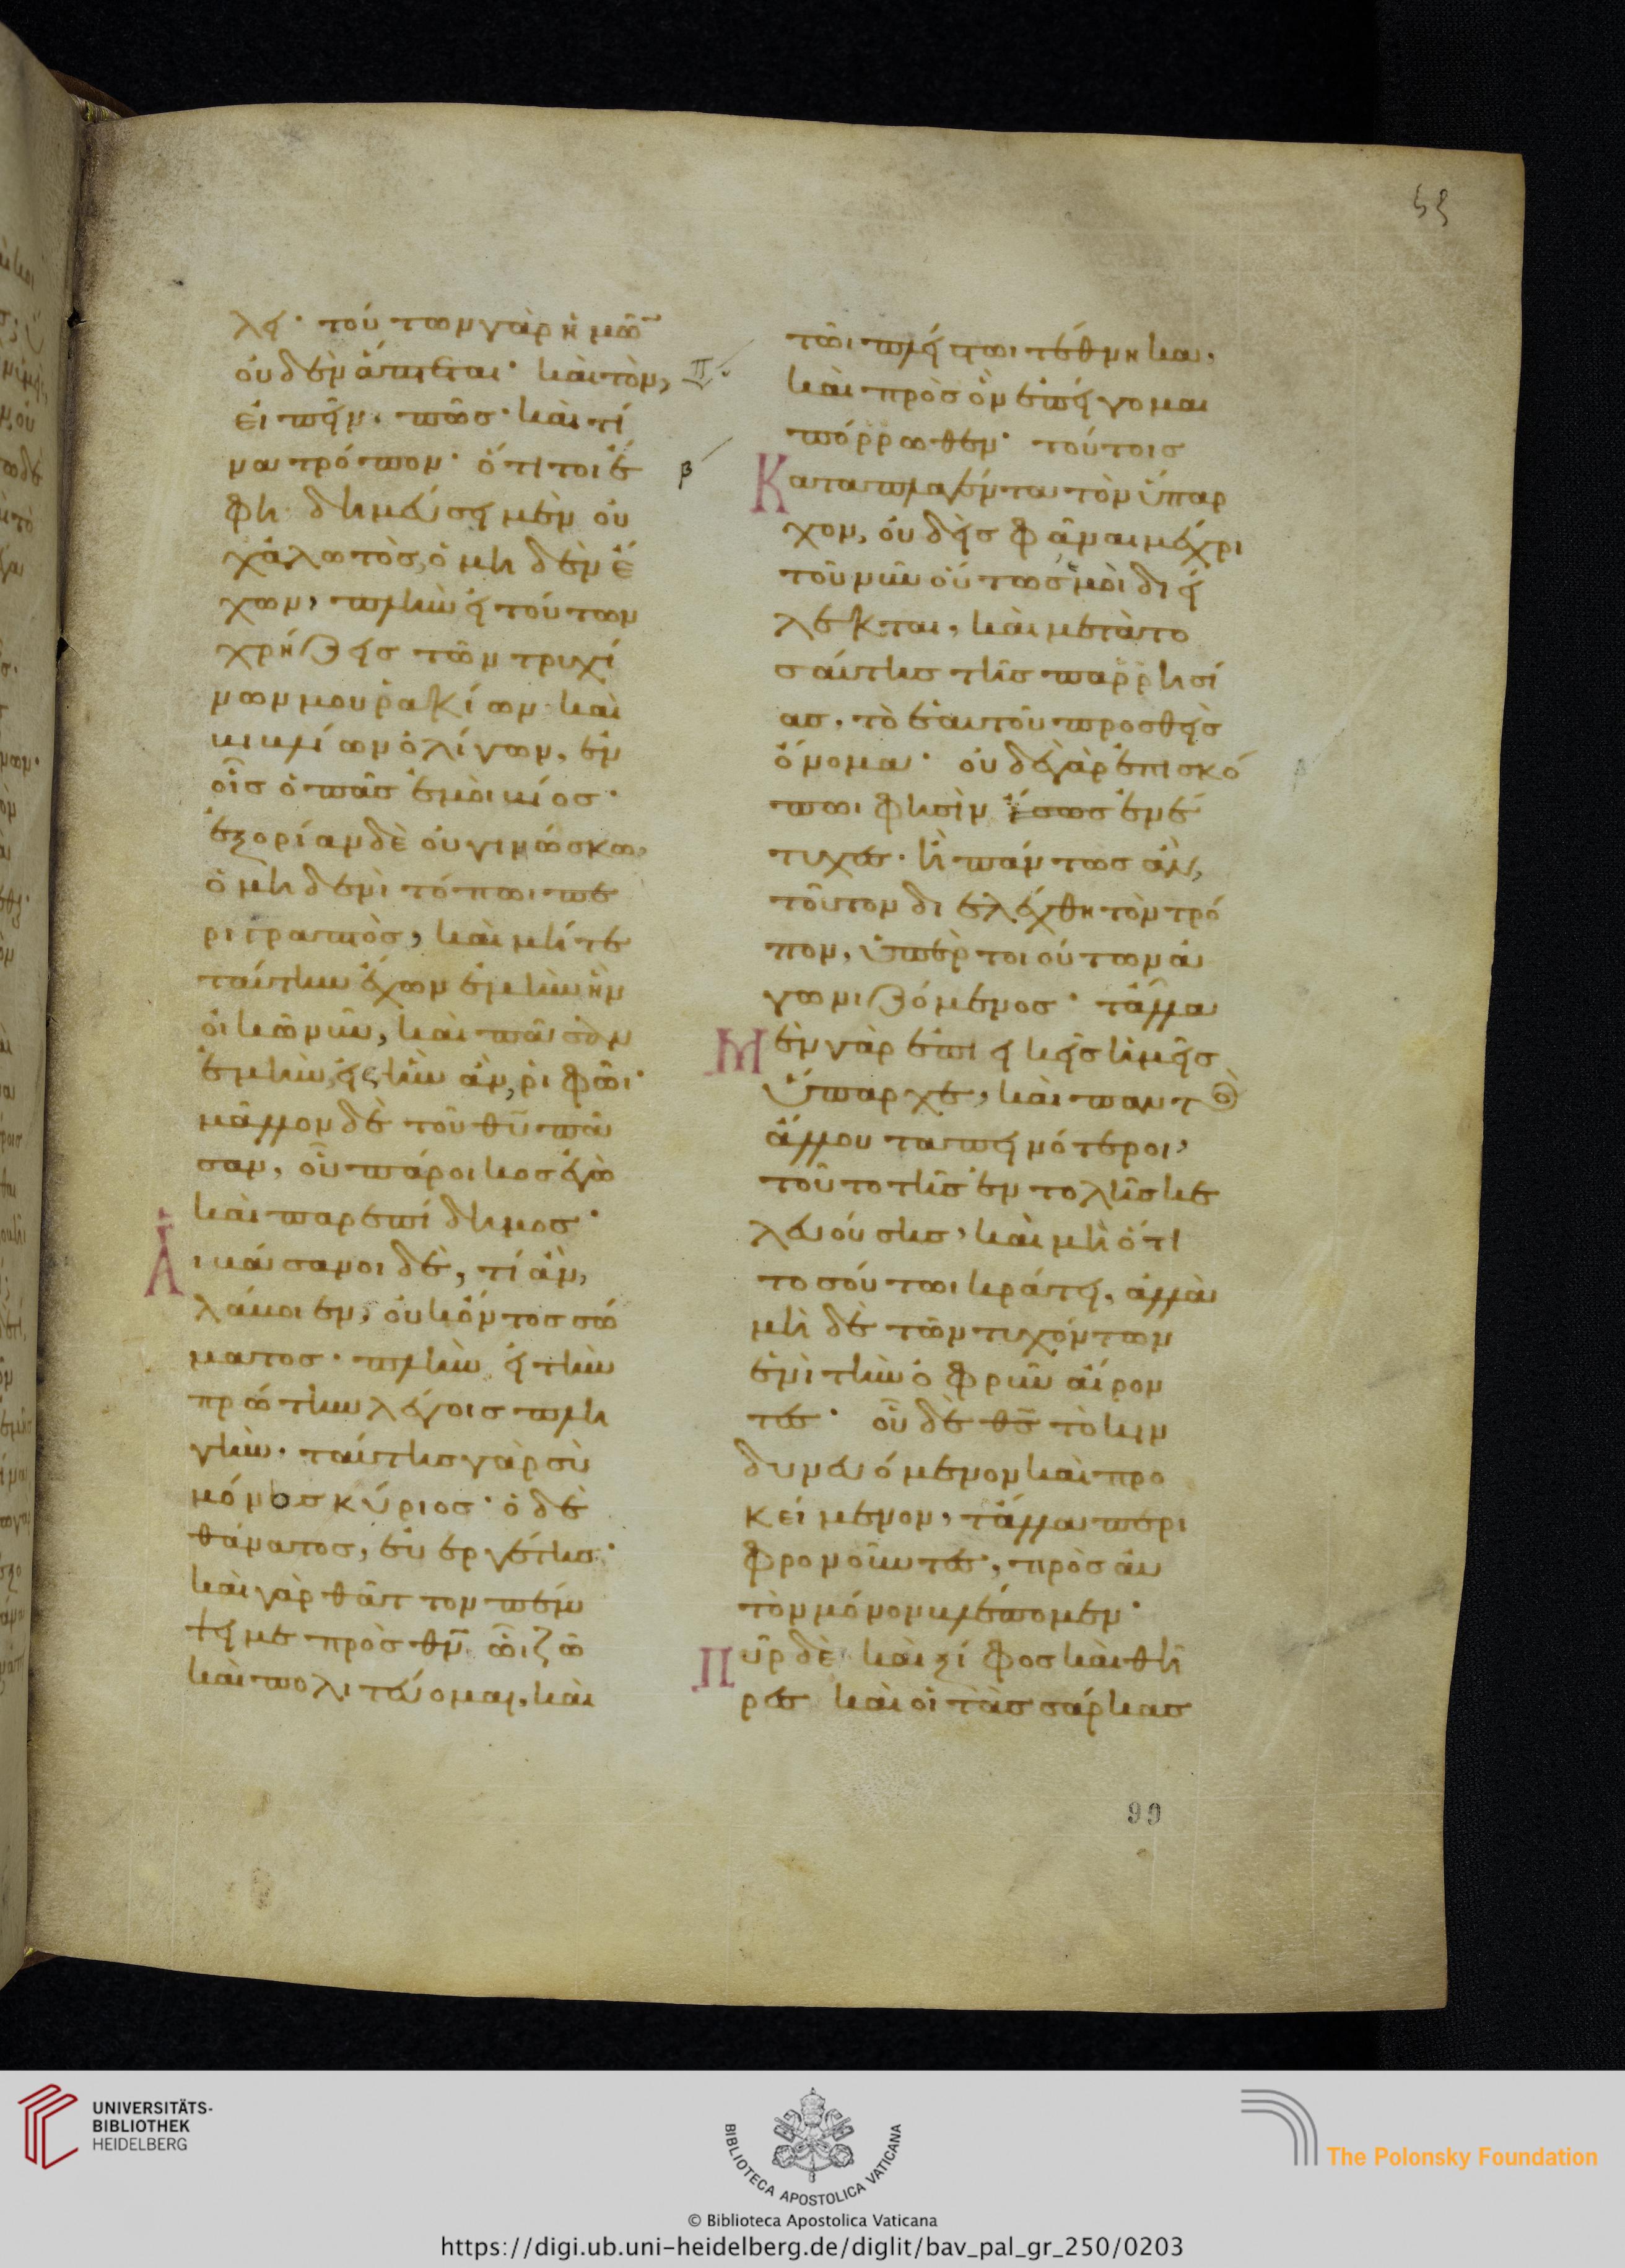 λει· τούτων γὰρ ἡμῶν
οὐδὲν ἅπτεται· καὶ τὸν,
εἰπεῖν. πῶς· καὶ τί
να τρόπον· ὅτι τοι ἔ
φη δημεύσει μὲν οὐ
χἁλωτὸς, ὁ μηδὲν ἔ
χων, πλὴν εἰ τούτων
χρήζεις τῶν τρυχί
νων μου ῥακίων καὶ
βιβλίων ὀλίγων, ἐν
οἷς ὁ πᾶς ἐμοὶ βίος·
ἐξορίαν δὲ οὐ γινώσκω,
ὁ μηδενὶ τόπωι πε
ριγραπτὸς, καὶ μήτε
ταύτην ἔχων ἐμὴν ἣν
οἰκῶ νῦν, καὶ πᾶσαν
ἐμὴν, εἰς ἣν ἂν, ῥιφῶι·
μᾶλλον δὲ τοῦ θῦ πᾶ
σαν, οὗ πάροικος ἐγὼ
καὶ παρεπίδημος·
Αἱ βάσανοι δὲ, τί ἂν,
λάβοιεν, οὐκ ὄντος σώ
ματος· πλὴν εἰ τὴν
πρώτην λέγοις πλη
γήν· ταύτης γὰρ σὺ
μόνος κύριος· ὁ δὲ
θάνατος, εὐεργέτης·
καὶ γὰρ θᾶττον πέμ
ψει με πρὸς θν̄ ὧι ζῶ
καὶ πολιτεύομαι, καὶ
τῶι πλείστωι τέθνηκα,
καὶ πρὸς ὃν ἐπείγομαι
πόρρωθεν· τούτοις
Καταπλαγέντα τὸν ὕπαρ
χον, οὐδεὶς φάναι μέχρι
τοῦ νῦν οὕτως ἐμοὶ διεί
λεκται, καὶ μετὰ το
σαύτης τῆς παρρησί
ας, τὸ ἑαυτοῦ προσθεὶς
ὄνομα· οὐδὲ γὰρ ἐπισκό
πωι φησὶν ἴσως ἐνέ
τυχες· ἢ πάντως ἂν,
τοῦτον διελέχθη τὸν τρό
πον, ὑπὲρ τοιούτων ἀ
γωνιζόμενος· τἄλλα
Μὲν γὰρ ἐπιεικεῖς ἡμεῖς
ὕπαρχε, καὶ παντὸς
ἄλλου ταπεινότεροι,
τοῦτο τῆς ἐντολῆς κε
λευούσης, καὶ μὴ ὅτι
τοσούτωι κράτει, ἀλλὰ
μηδὲ τῶν τυχόντων
ἑνὶ τὴν ὀφρῦν αἴρον
τες· οὗ δὲ θς̄ τὸ κιν
δυνευόμενον καὶ προ
κείμενον, τἄλλα περι
φρονοῦντες, πρὸς αὐ
τὸν μόνον βλέπομεν·
Πῦρ δὲ καὶ ξίφος καὶ θῆ
ρες καὶ οἱ τὰς σάρκας
99
UNIVERSITÄTS-
BIBLIOTHEK
HEIDELBERG
BIBLIOTECA APOSTOLICA VATICANA
The Polonsky Foundation
© Biblioteca Apostolica Vaticana
https://digi.ub.uni-heidelberg.de/diglit/bav_pal_gr_250/0203